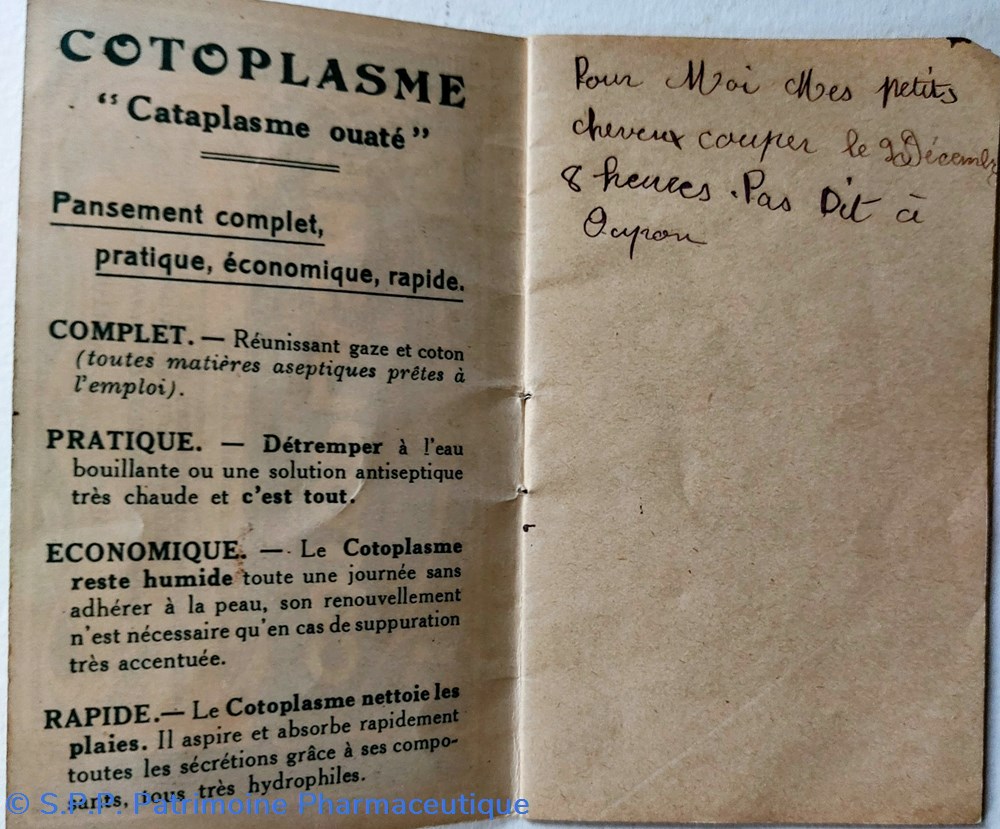 COTOPLASME
“Cataplasme ouaté”
Pansement complet,
pratique, économique, rapide.
COMPLET. — Réunissant gaze et coton
(toutes matières aseptiques prêtes à
l'emploi).
PRATIQUE. — Détremper à l'eau
bouillante ou une solution antiseptique
très chaude et c'est tout.
ECONOMIQUE. — Le Cotoplasme
reste humide toute une journée sans
adhérer à la peau, son renouvellement
n'est nécessaire qu'en cas de suppuration
très accentuée.
RAPIDE. — Le Cotoplasme nettoie les
plaies. Il aspire et absorbe rapidement
toutes les sécrétions grâce à ses compo-
sants, tous très hydrophiles.
© S.P.P. Patrimoine Pharmaceutique
Pour Moi Mes petits
cheveux couper le Décembre
8 heures. Pas Dit à